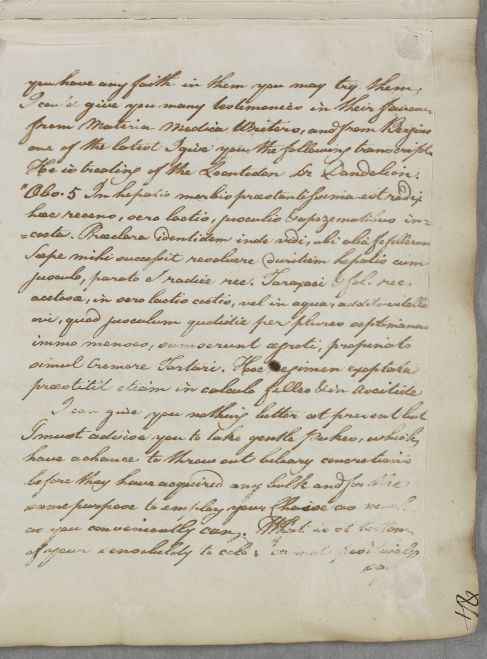 you have any faith in them you may try them,
I could give you many testimonies in their favour
from Materia Medica Writers, and from Bergius
one of the latest I give you the following transcript.
He is treating of the Leontodon or Dandelion.
"Obs. 5 In hepatis morbis præstantissima est radix
hæc recens, sero lactis, jusculis & apozematibus in-
=cocta. Præclara identidem inde vidi, ubi alia fefellerunt
Sæpe mihi successit resolvere duritiem hepatis cum
jusculo, parato e radice rec. Taraxaci & fol. rec.
acetosæ, in sero lactis coctis, vel in aqua, addito vitello
ovi, quod jusculum quotidie per plures septimanas
immo menses, sumserunt ægroti, propinato
simul Cremore Tartari. Hoc regimen exoptata
præstitit etiam in calculo felleo & in Ascitide
I can give you nothing better at present but
I must advise you to take gentle Pukes, which
have a chance to throw out biliary concretions
before they have acquired any bulk and for the
same purpose to employ your Chaise as much
as you conveniently can. What is at bottom
of your sensibility to cold I a not positively
say